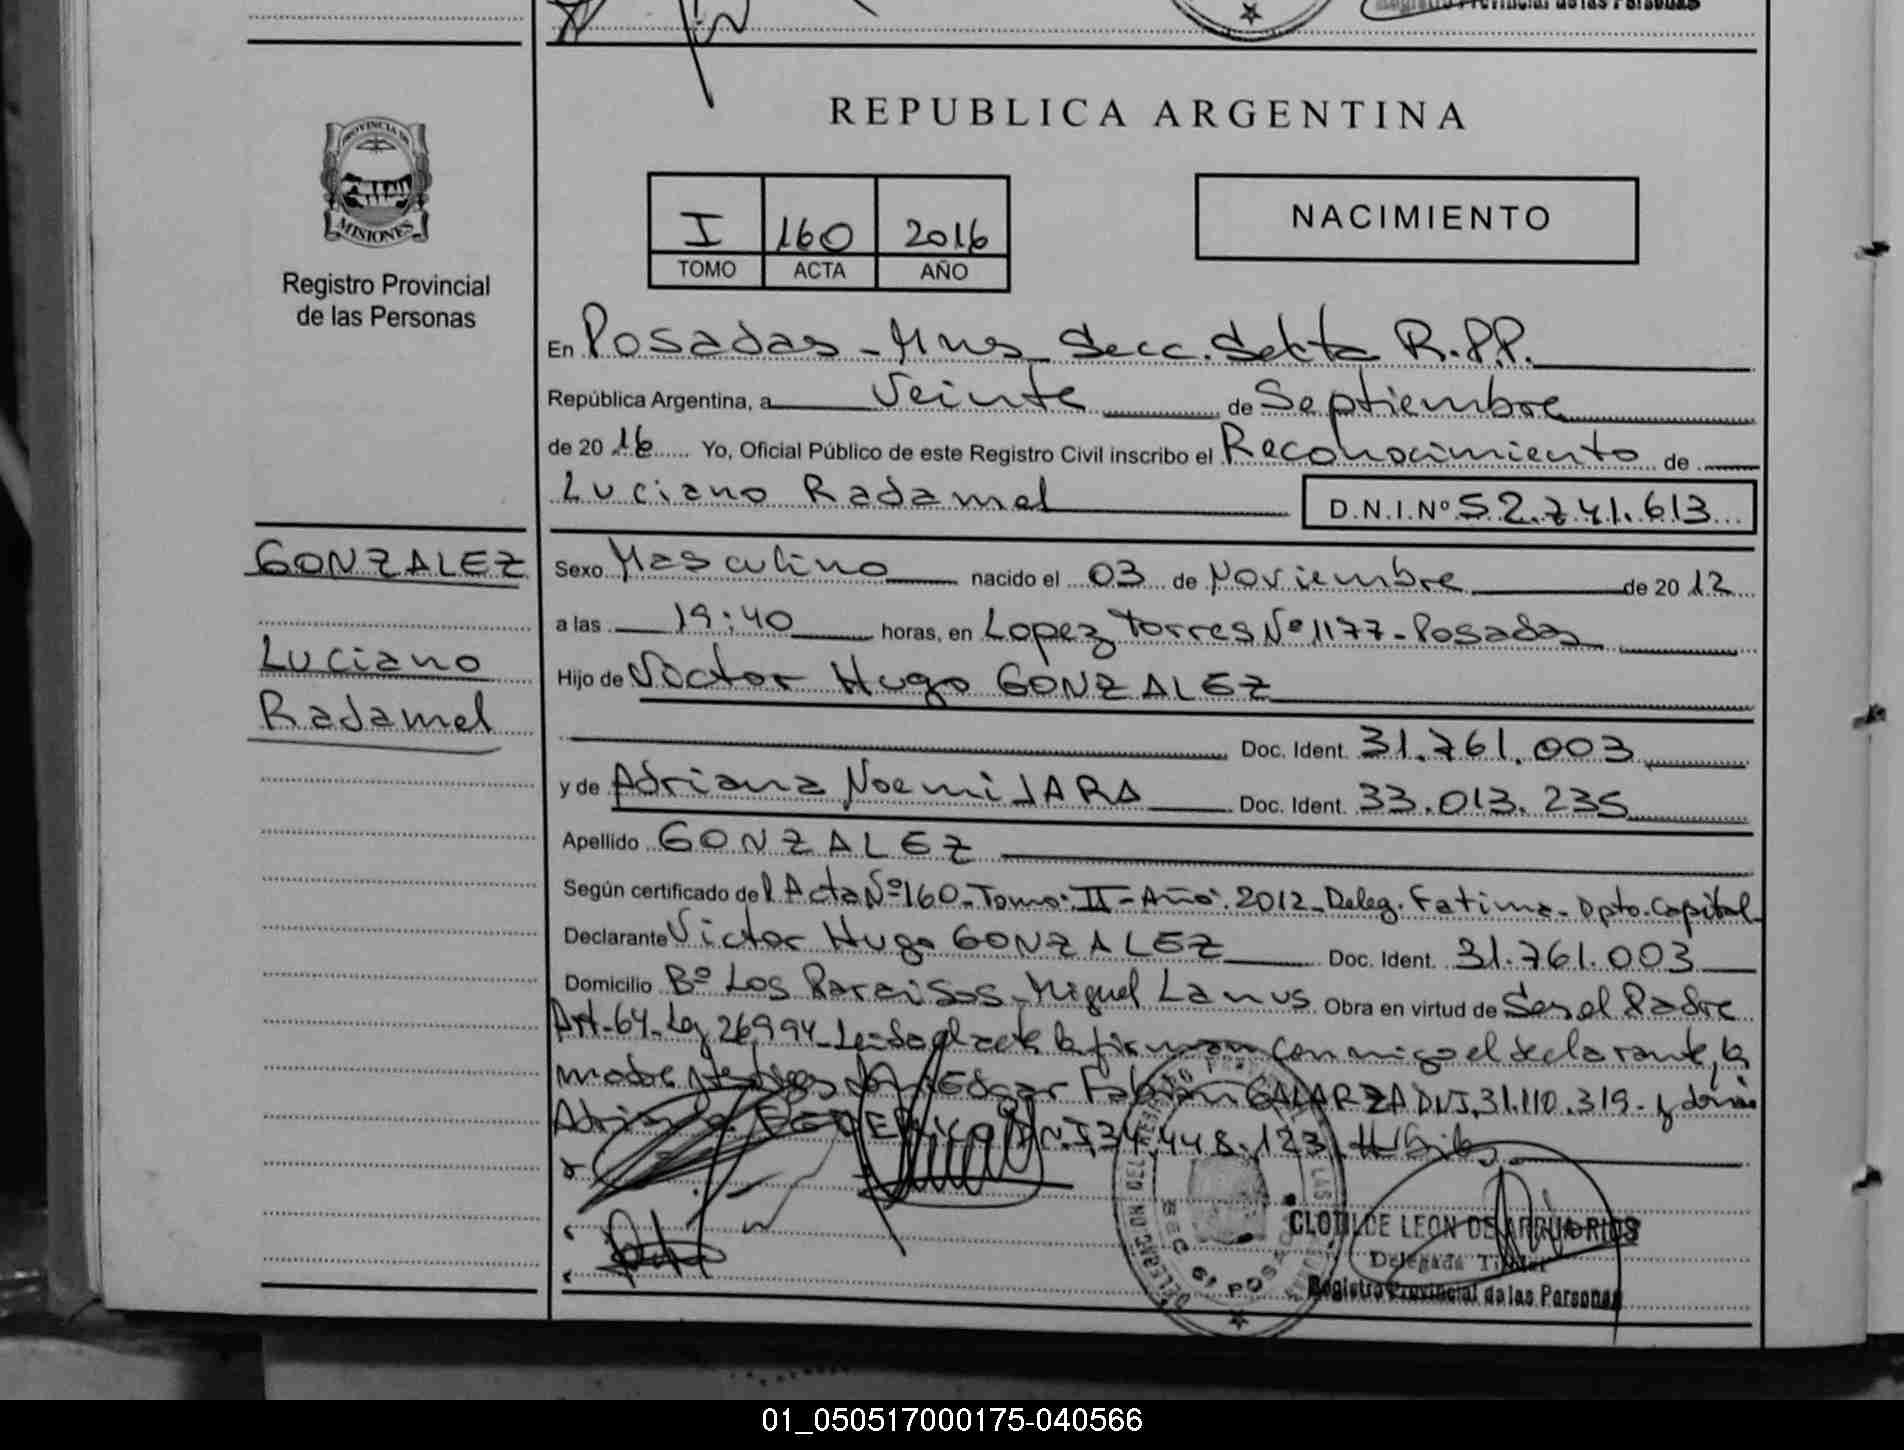 Registro Provincial de las Personas
REPUBLICA ARGENTINA
PROVINCIA DE
MISIONES
Registro Provincial
de las Personas
I 160 2016
TOMO ACTA AÑO
NACIMIENTO
En Posadas - Mnes Secc. Sexta R.P.P.
República Argentina, a Veinte de Septiembre
de 2016 Yo, Oficial Público de este Registro Civil inscribo el Reconocimiento de
Luciano Radamel D.N.I.Nº 52.741.613
GONZALEZ
Luciano
Radamel
Sexo Masculino nacido el 03 de Noviembre de 2012
a las 19:40 horas, en Lopez Torres Nº 1177 - Posadas
Hijo de Victor Hugo GONZALEZ
Doc. Ident. 31.761.003
y de Adriana Noemi JARA Doc. Ident. 33.013.235
Apellido GONZALEZ
Según certificado del Acta Nº 160 - Tomo: II - Año: 2012 - Deleg. Fatima - Dpto. Capital
Declarante Victor Hugo GONZALEZ Doc. Ident. 31.761.003
Domicilio Bº Los Paraisos - Miguel Lanus Obra en virtud de Ser el Padre
Art. 64 - Ley 26994 - Leida el acta la firman conmigo el declarante, la
madre y testigos don Edgar Fabian GALARZA DNI. 31.110.319 - y doña
D.N.I 34.448.123
CLOTILDE LEON DE
Delegada Titular
Registro Provincial de las Personas
01_050517000175-040566